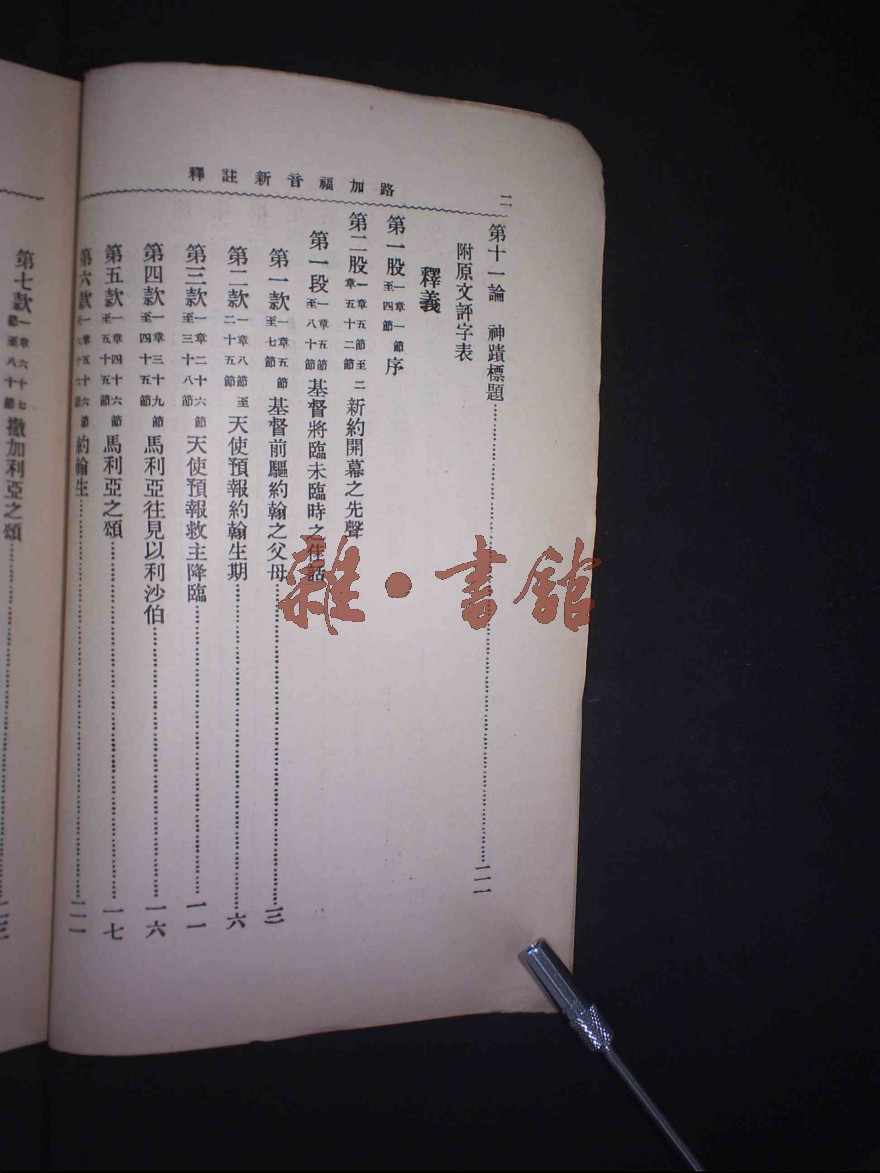 路加福音新註釋
二
第十一論 神蹟標題……二一
附原文評字表
釋義
第一股一章一節至四節序
第二股一章五節至二章五十二節新約開幕之先聲
第一段一章五節至八十節基督將臨未臨時之佳話
第一款一章五節至七節基督前驅約翰之父母……三
第二款一章八節至二十五節天使預報約翰生期……六
第三款一章二十六節至三十八節天使預報救主降臨……一一
第四款一章三十九節至四十五節馬利亞往見以利沙伯……一六
第五款一章四十六節至五十五節馬利亞之頌……一七
第六款一章五十六節至六十六節約翰生……二一
第七款一章六十七節至八十節撒加利亞之頌……二三
雜·書館